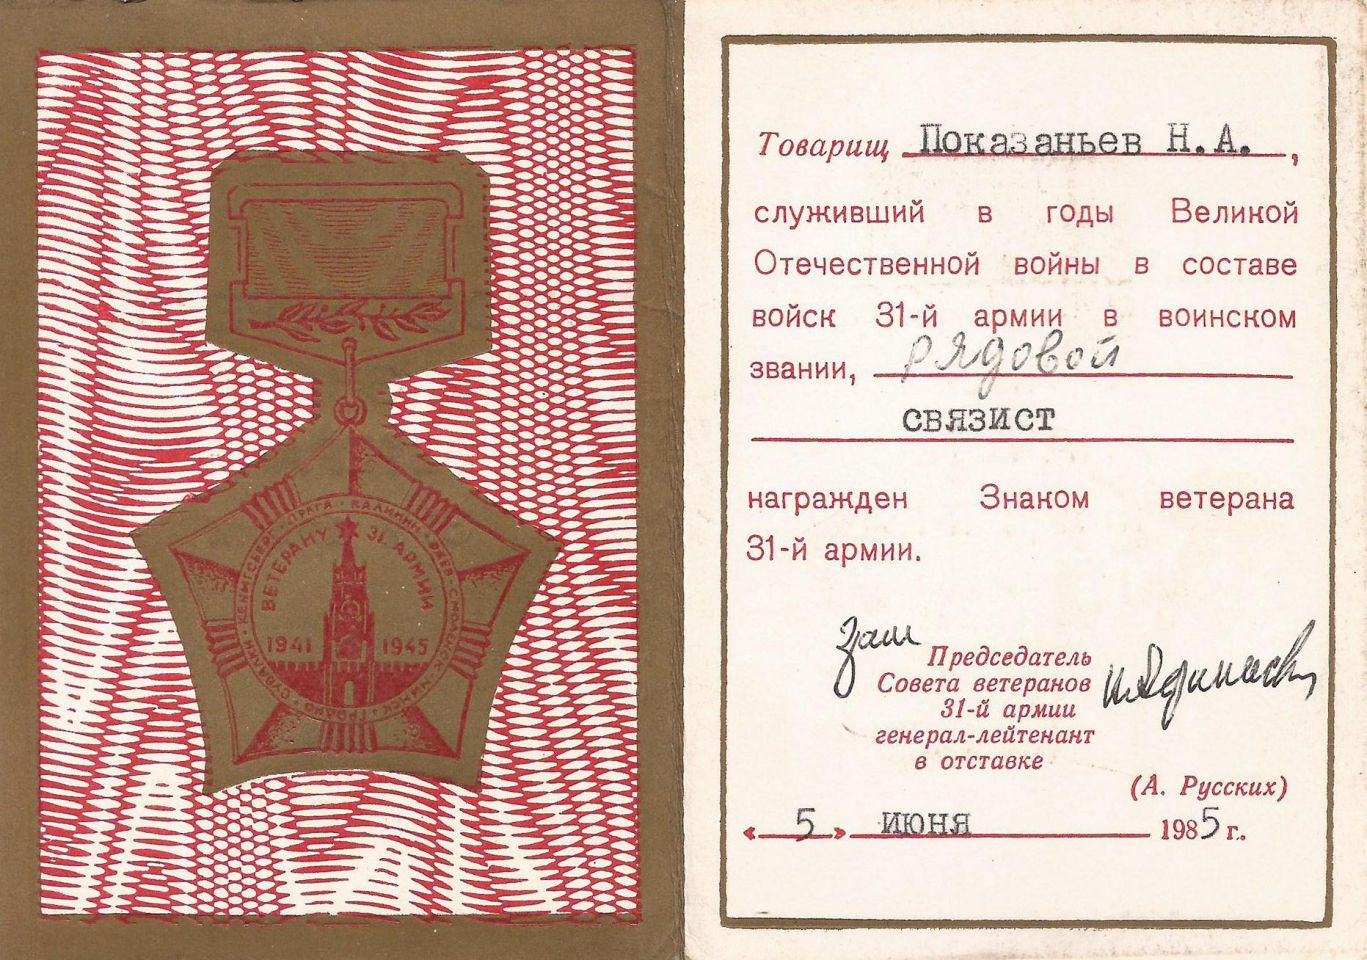 ВЕТЕРАНУ 31 АРМИИ
1941 1945
КЕНИГСБЕРГ · ПРАГА · КАЛИНИН · РЖЕВ · СМОЛЕНСК · МИНСК · ГРОДНО · СУВАЛКИ
Товарищ Показаньев Н.А.,
служивший в годы Великой
Отечественной войны в составе
войск 31-й армии в воинском
звании, рядовой
связист
награжден Знаком ветерана
31-й армии.
Зам
Председатель
Совета ветеранов
31-й армии
генерал-лейтенант
в отставке
(А. Русских)
«5» июня 1985 г.